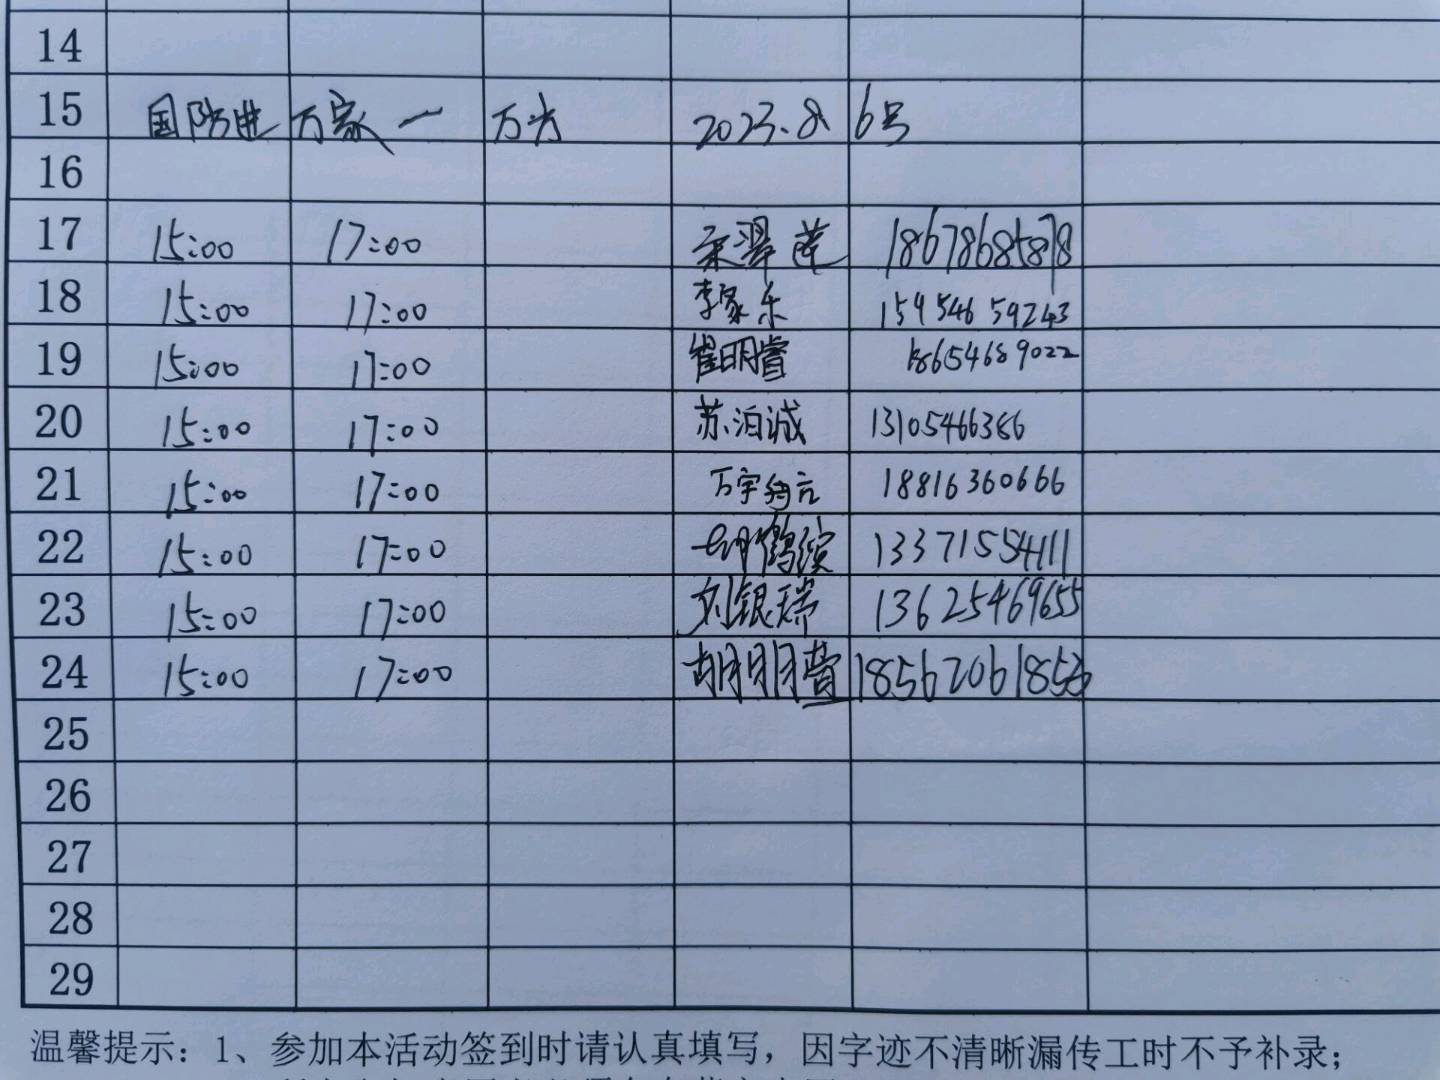 14
15 国防进万家一 万方 2023.8 6号
16
17 15:00 17:00 18678685878
18 15:00 17:00 李家乐 15954659243
19 15:00 17:00 崔明睿 18654689022
20 15:00 17:00 苏泊诚 13105466366
21 15:00 17:00 万宇 18816360666
22 15:00 17:00 鹤缤 13371554111
23 15:00 17:00 刘银瑞 13625469655
24 15:00 17:00 胡明月 18562061853
25
26
27
28
29
温馨提示：1、参加本活动签到时请认真填写，因字迹不清晰漏传工时不予补录；